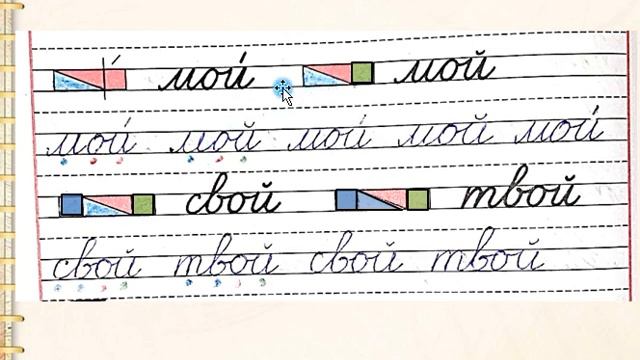 мои́ мой
мои́ мой мои́ мой мои́
свой твой
свой твой свой твой